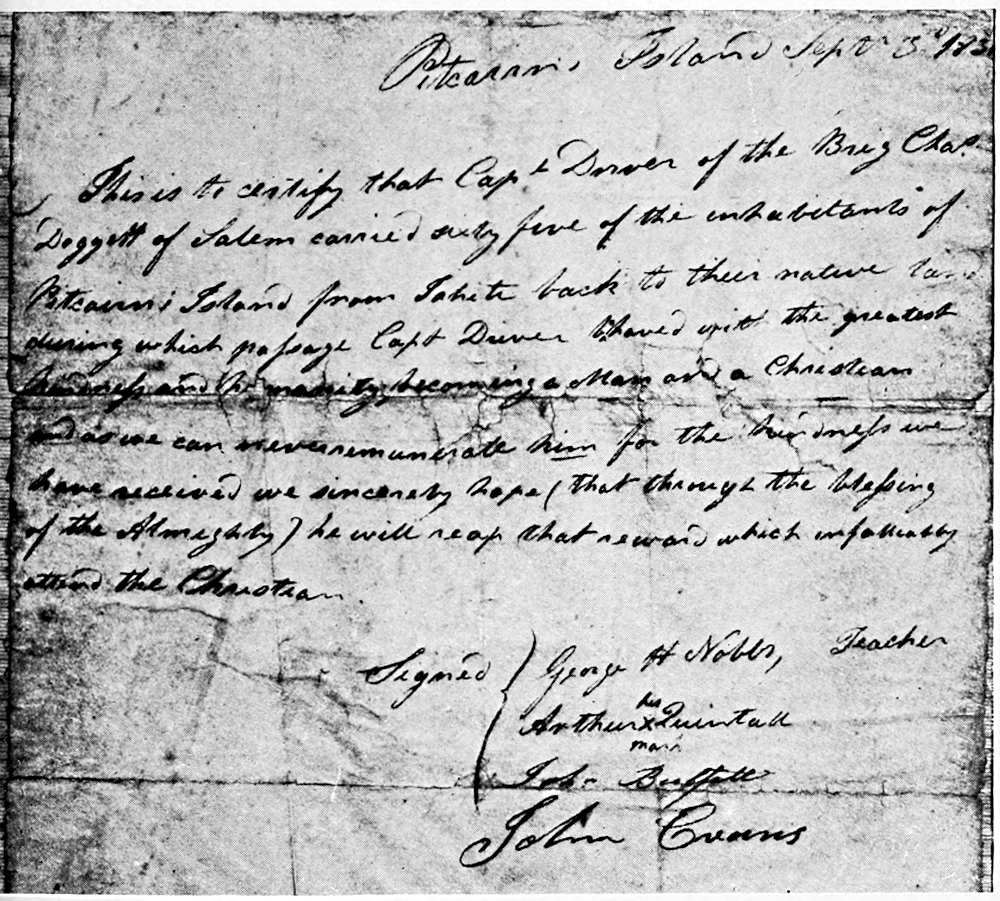 Pitcairns Island Sept 3d 183
This is to certify that Capt Driver of the Brig Chas.
Doggett of Salem carried sixty five of the inhabitants of
Pitcairns Island from Tahiti back to their native land
during which passage Capt Driver behaved with the greatest
kindness and humanity becoming a Man and a Christian
and as we can never remunerate him for the kindness we
have received we sincereby hope (that through the blessing
of the Almighty) he will reap that reward which infallibly
attend the Christian.
Signed George H Nobbs, Teacher
his
Arthur x Quintall
mark
John Buffett
John Evans